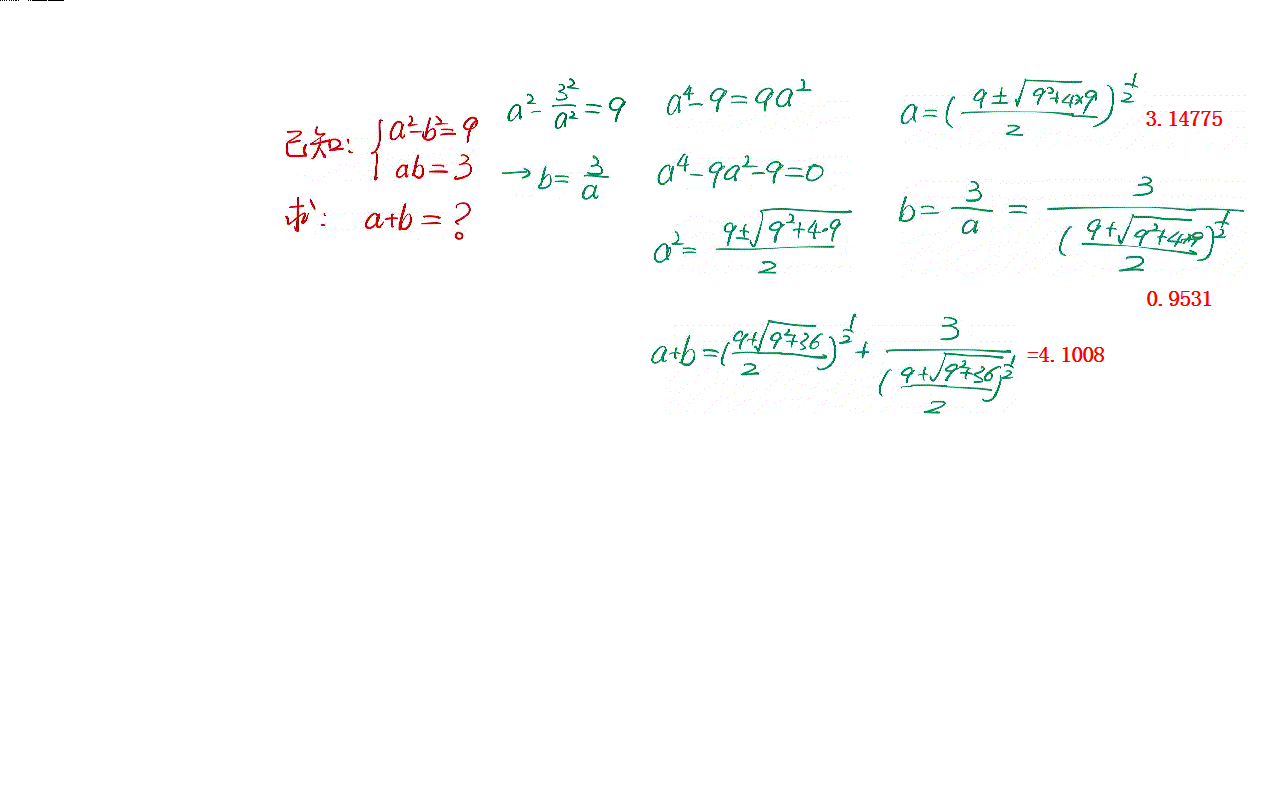 已知: { a²-b²=9
ab=3
求: a+b=?
a²-3²/a²=9
→b=3/a
a⁴-9=9a²
a⁴-9a²-9=0
a²=(9±√(9²+4·9))/2
a=((9±√(9²+4×9))/2)^(1/2) 3.14775
b=3/a=3/((9+√(9²+4×9))/2)^(1/2)
0.9531
a+b=((9+√(9²+36))/2)^(1/2)+3/((9+√(9²+36))/2)^(1/2) =4.1008